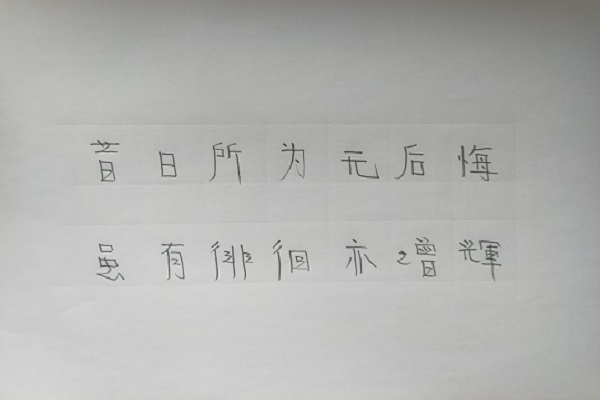 昔日所为无后悔
虽有徘徊亦增輝